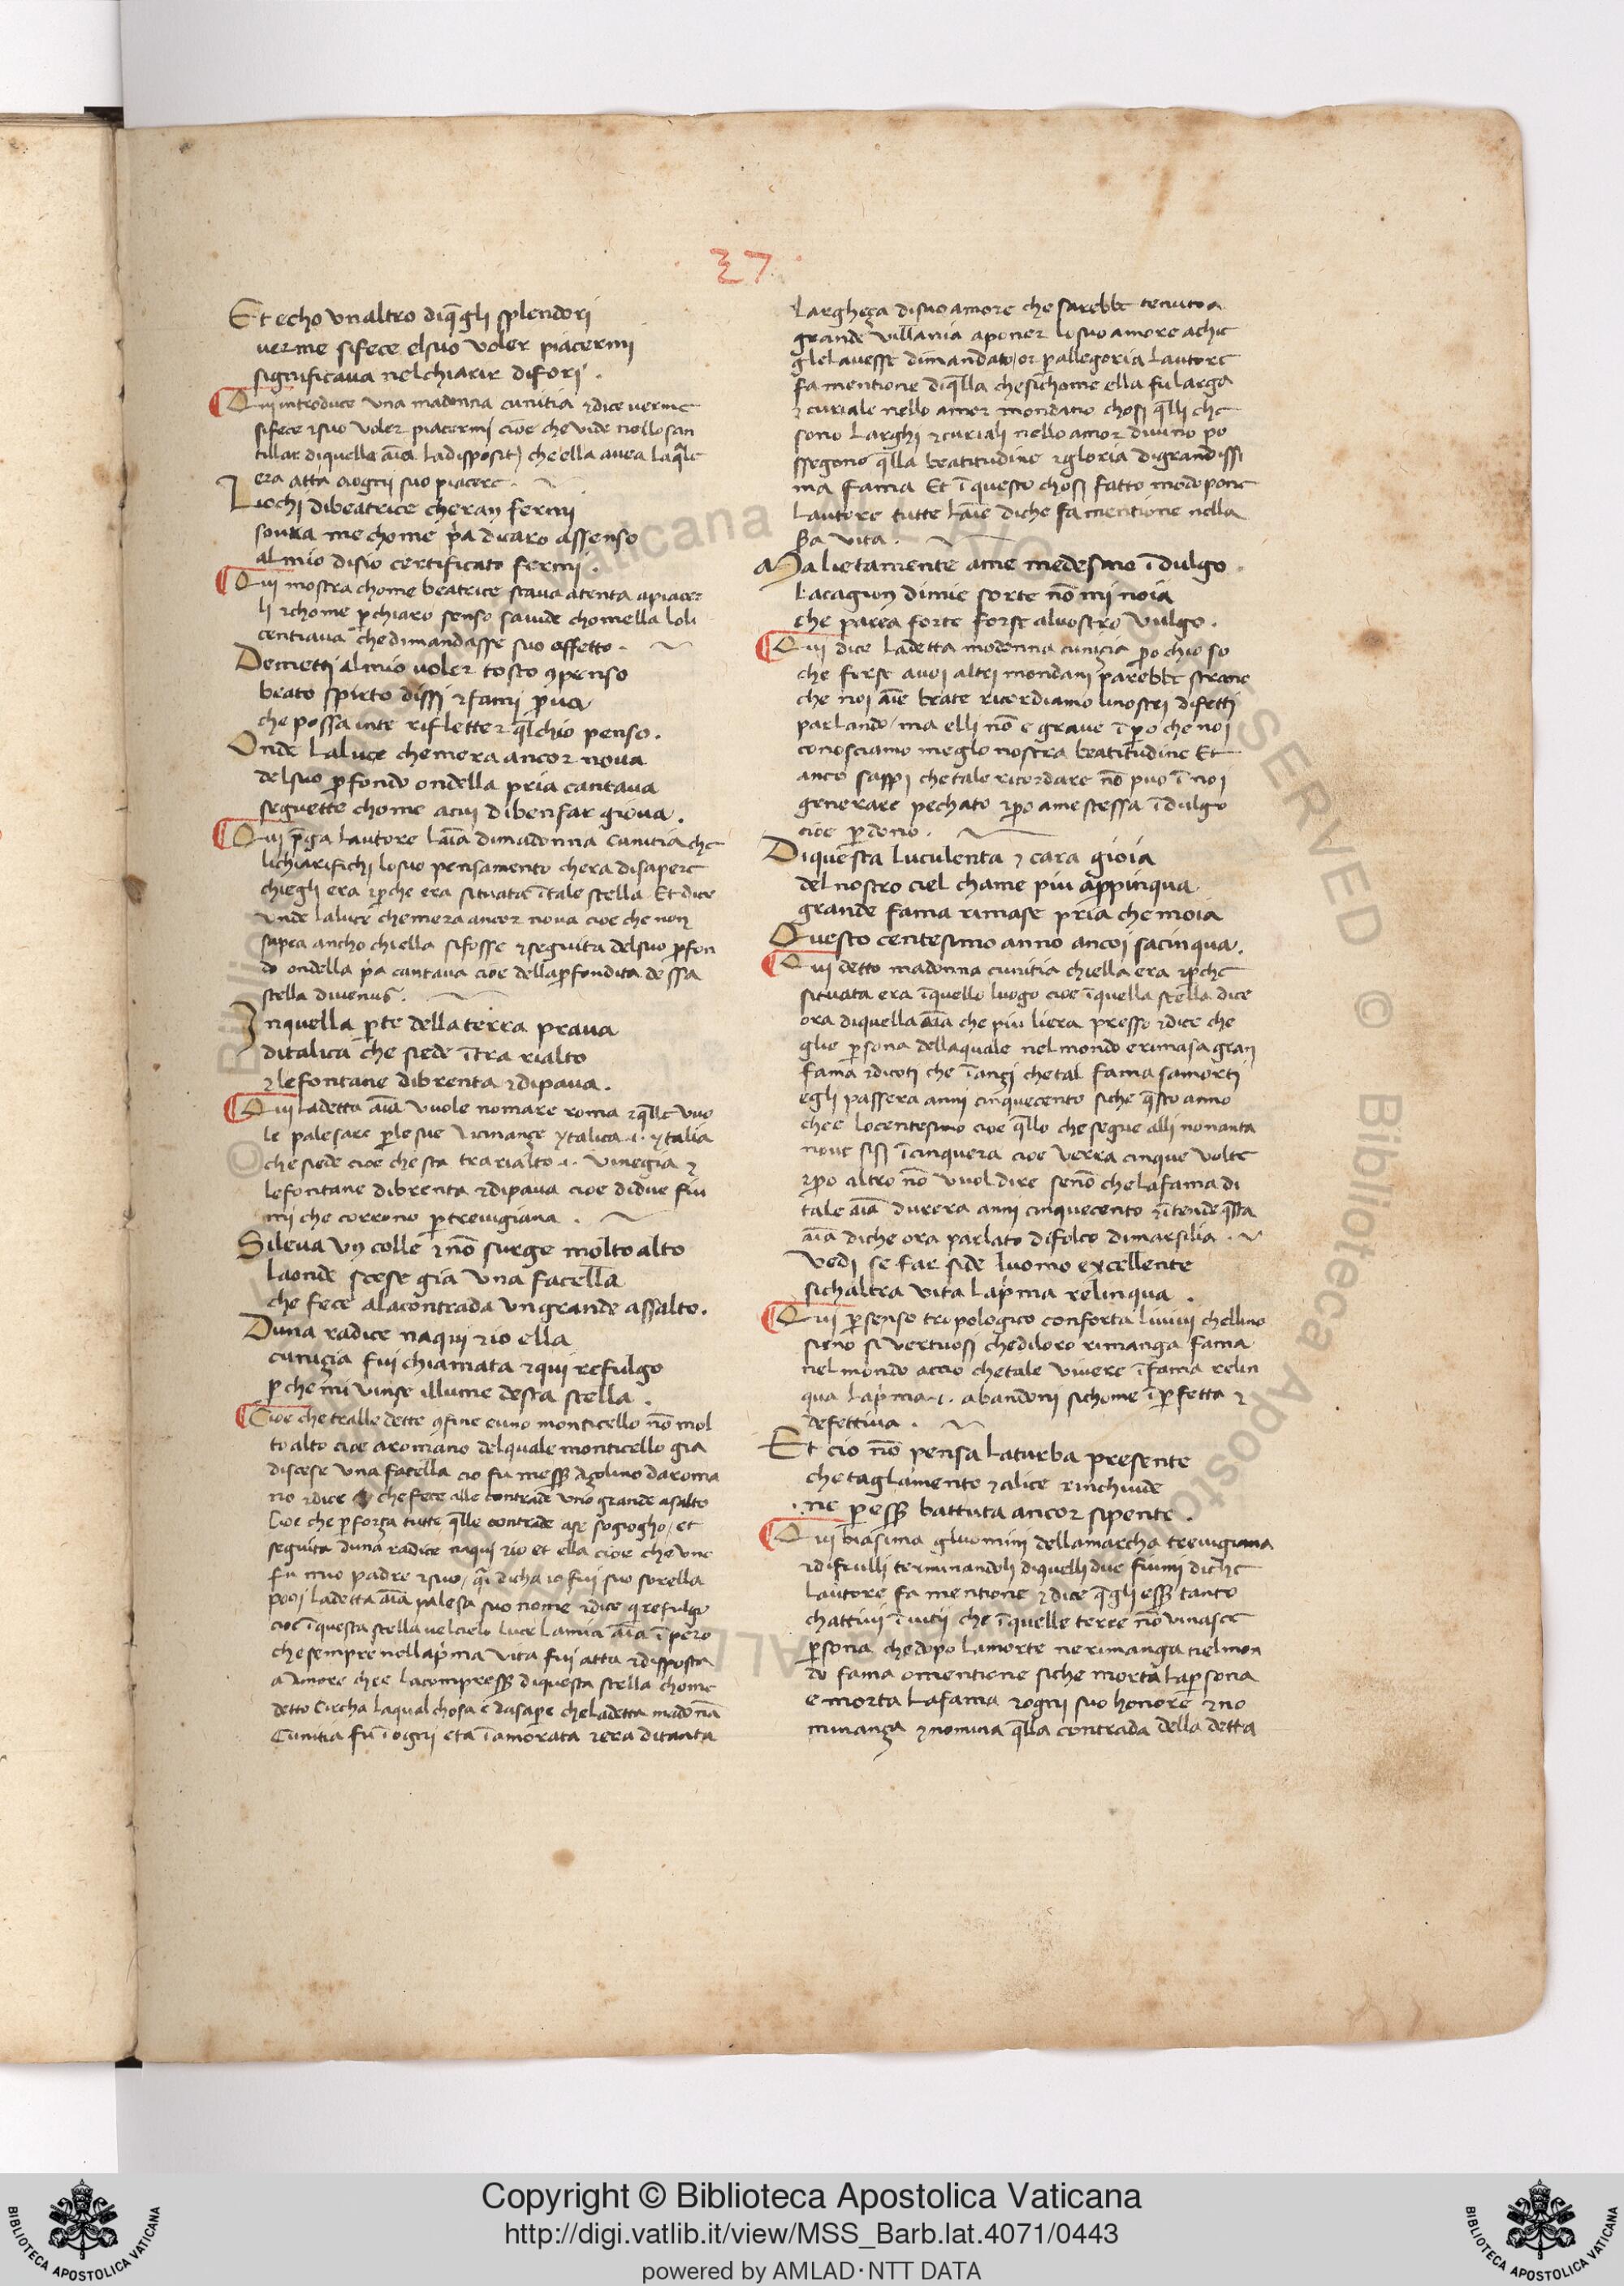 37
Et echo vnaltro diq̄gli splendori
uerme sifece elsuo voler piacermi
significaua nelchiarir difori .
Qui introduce vna madonna cunitia ⁊dice uerme
sifece ⁊suo voler piacermi cioe che vide nello san
tillar diquella aīa ladisposit) che ella auea laq̄le
era atta aogni suo piacere .
Liochi dibeatrice cheran fermi
soura me chome p̄a dicaro assenso
almio disio certificato fermi .
Qui mostra chome beatrice staua atenta apiacer
li ⁊chome ꝑchiaro senso sauide chomella loli
centiaua chedimandasse suo affetto .
Demetti almio uoler tosto ꝯpenso
beato spirto dissi ⁊fami ꝓua
che possa inte rifletter q̄lchio penso .
Onde laluce chemera ancor noua
delsuo ꝓfondo ondella pria cantaua
seguette chome acui dibenfar gioua .
Qui p̄ga lautore laīa dimadonna cunitia che
lichiarifichi losuo pensamento chera disapere
chiegli era ⁊ꝑche era situata ītale stella Et dice
vnde laluce chemera ancor noua cioe che non
sapea ancho chiella sifosse ⁊seguita delsuo ꝓfon
do ondella p̄a cantaua cioe dellaꝓfondita de ssa
stella diuenus .
Inquella ꝑte della terra praua
ditalica che siede ītra rialto
⁊lefontane dibrenta ⁊dipaua .
Qui ladetta aīa vuole nomare roma ⁊q̄lle vuo
le palesare ꝑlesue vicinanze ytalica .i. ytalia
che siede cioe che sta trarialto .i. vinegia ⁊
lefontane dibrenta ⁊dipaua cioe didue fiu
mi che corrono ꝑtreuigiana .
Sileua vn colle ⁊nō surge molto alto
laonde scese gia vna facella
che fece alacontrada vngrande assalto .
Duna radice naqui ⁊io ella
cunizia fui chiamata ⁊qui refulgo
ꝑche mi vinse illume desta stella .
Cioe che tralle dette ꝯfine euno monticello nō mol
to alto cioe aromano delquale monticello gia
discese vna facella cio fu mess̄ Azolino daroma
no ⁊dice che fece alle contrade vno grande asalto
Cioe che ꝑforza tutte q̄lle contrade ase sogiogho / et
seguita duna radice naqui ⁊io et ella cioe che vne
fu mio padre ⁊suo / q̄i dicha io fui suo sorella
pooi ladetta aīa palesa suo nome ⁊dice q refulgo
cioe īquesta stella uelcielo luce lamia aīa īpero
che sempre nellap̄ma vita fui atta ⁊disposta
a amore chee lacompress̄ diquesta stella chome
detto circha laqual chosa e dasape cheladetta madōna
Cunitia fu ī ogni eta īamorata ⁊era ditanta
largheza disuo amore che sarebbe tenuto a
grande villania aponer losuo amore ache
glelauesse dimandato / or ꝑallegoria lautore
fa mentione diq̄lla chesichome ella fu larga
⁊ curiale nello amor mondano chosi q̄lli che
sono larghi ⁊curiali nello amor diuino po
ssegono q̄lla beatitudine ⁊gloria digrandissi
ma fama Et ī questo chosi fatto modo pone
lautore tutte laīe diche fa mentione nella
p̄a vita .
Ma lietamente ame medesmo īdulgo .
lacagion dimie sorte nō mi noia
che parea forte forse aluostro vulgo .
Qui dice ladetta modonna cunizia ꝑo chio so
che forse auoi altri mondani parebbe strane
che noi aīe beate ricordiamo linostri difetti
parlando / ma elli nō e graue īꝑo che noi
conosciamo meglo nostra beatitudine Et
anco sappi chetale ricordare nō puo ī noi
generare pechato ⁊ꝑo ame stessa īdulgo
cioe ꝑdono .
Diquesta luculenta ⁊ cara gioia
del nostro ciel chame piu appinqua
grande fama rimase pria che moia
Questo centesimo anno ancoi sacinqua .
Qui detto madonna cunitia chiella era ⁊ꝑche
situata era īquello luogo cioe īquella stella dice
ora diquella aīa che piu liera presso ⁊dice che
glie ꝑsona dellaquale nel mondo e rimasa gran
fama ⁊dicoti che īanzi chetal fama samorti
egli passera anni cinquecento siche q̄sto anno
chee locentesimo cioe q̄llo che segue alli nonanta
noue sisi īcinquera cioe verra cinque volte
⁊ꝑo altro nō vuol dire senō chelafama di
tale aīa durera anni cinquecento ⁊ītende q̄sta
aīa diche ora parlato difolco dimarsilia .
Vedi se far side luomo excellente
sichaltra vita lap̄ma relinqua .
Qui ꝑsenso tropologico conforta liuiui chellino
sieno si vertuosi chediloro rimanga fama
nel mondo accio chetale viuere īfama relin
qua lap̄ma .i. abandoni sichome īꝑfetta ⁊
defettiua .
Et cio nō pensa laturba presente
che taglamento ⁊alice rinchiude
ne ꝑess̄ battuta ancor sipente .
Qui biasima gluomini dellamarcha treuigiana
⁊difriulli terminandoli diquelli due fiumi diche
lautore fa mentione ⁊dice q̄gli ess̄ tanto
chattiui īuitii che īquelle terre nō vinasce
ꝑsona chedopo lamorte nerimanga nelmon
do fama omentione siche morta laꝑsona
e morta lafama ⁊ogni suo honore ⁊no
minanza ⁊nomina q̄lla contrada della detta
Copyright © Biblioteca Apostolica Vaticana
http://digi.vatlib.it/view/MSS_Barb.lat.4071/0443
powered by AMLAD·NTT DATA
BIBLIOTECA APOSTOLICA VATICANA
BIBLIOTECA APOSTOLICA VATICANA